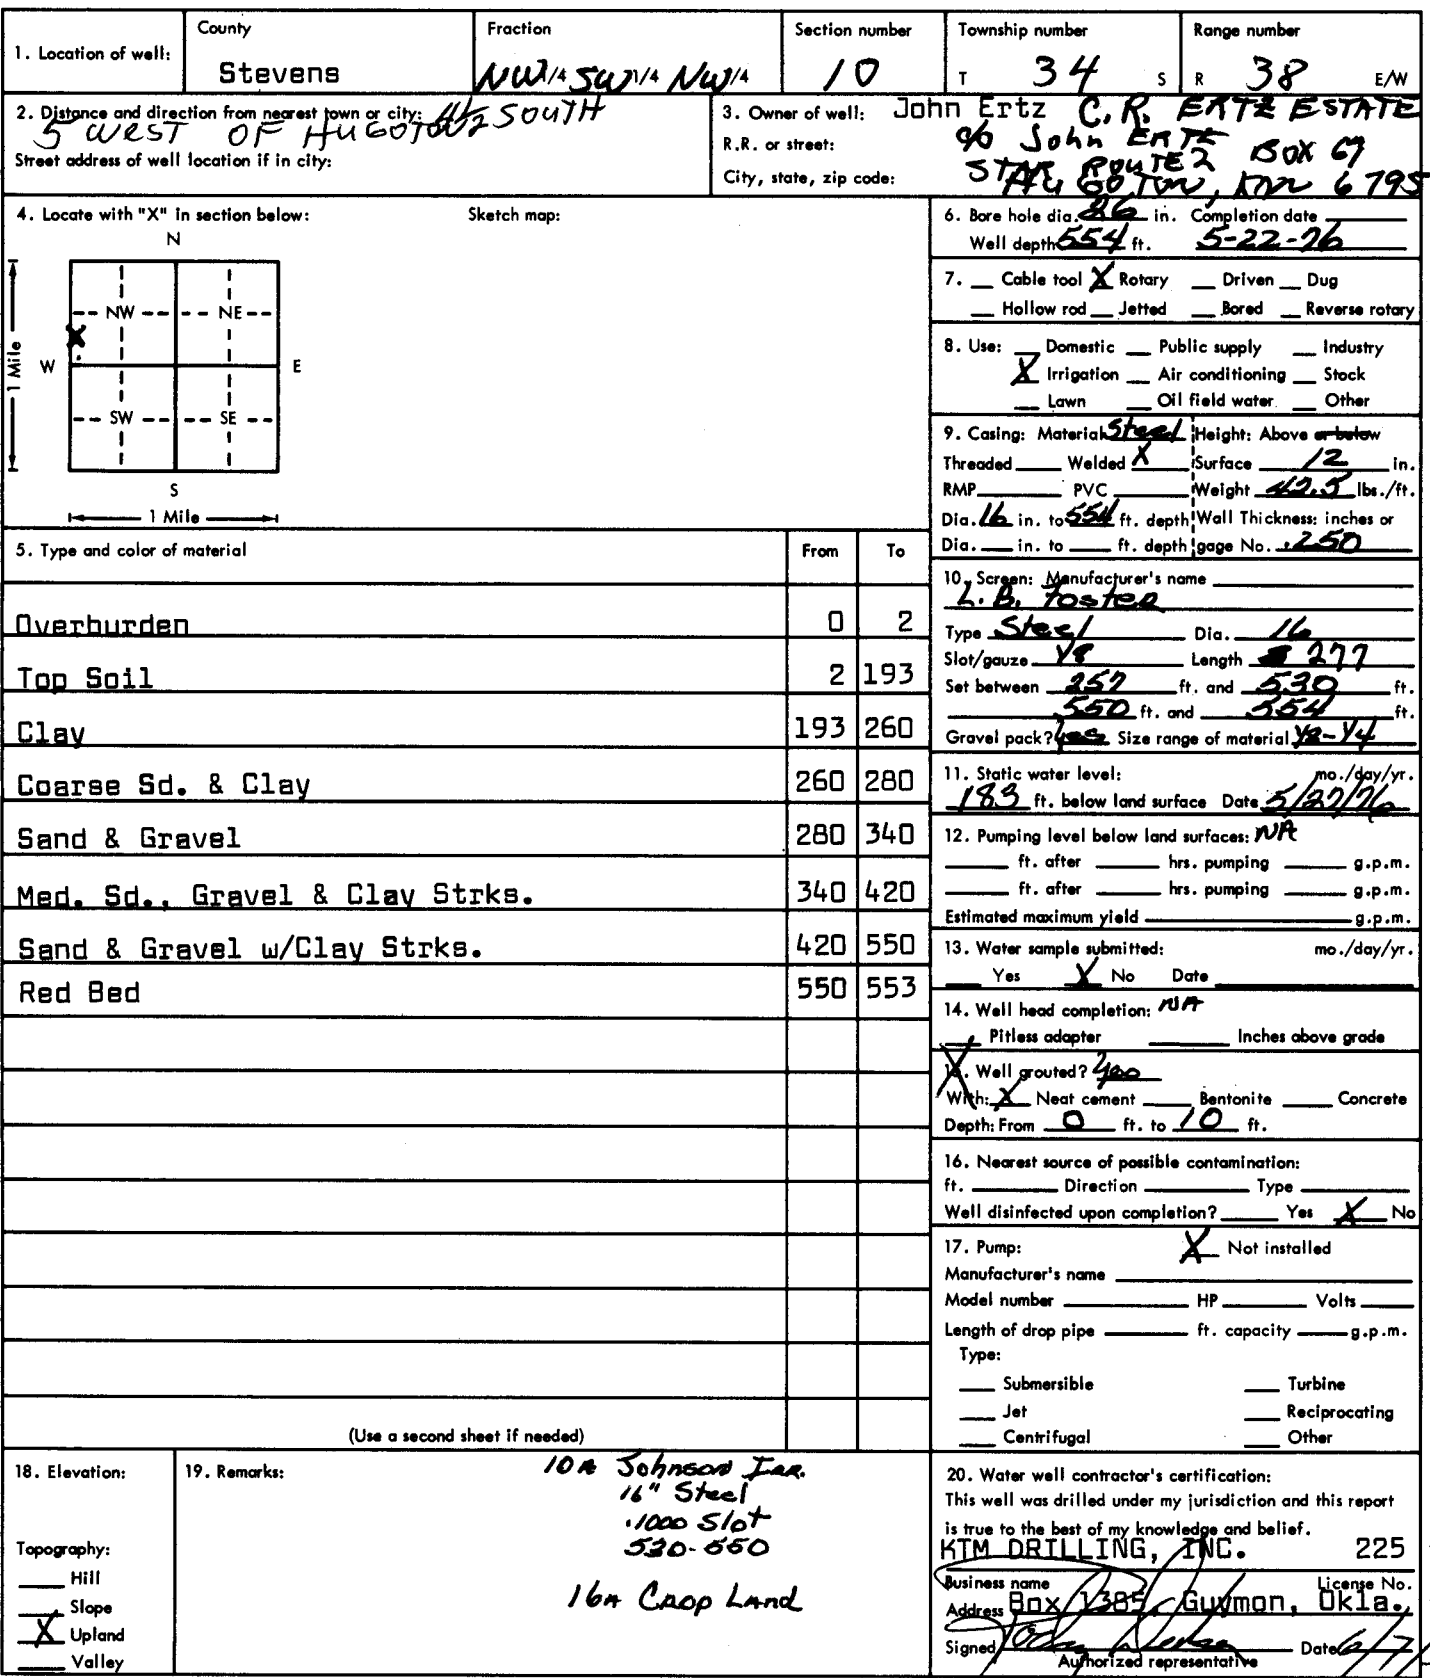 1. Location of well: County Stevens Fraction NW 1/4 SW 1/4 NW 1/4 Section number 10 Township number T 34 S Range number R 38 E/W
2. Distance and direction from nearest town or city: 4 1/2 SOUTH
5 WEST OF HUGOTON
Street address of well location if in city:
3. Owner of well: John Ertz C.R. ERTZ ESTATE
c/o John ERTZ
R.R. or street: STAR ROUTE 2 BOX 67
City, state, zip code: HUGOTON, 6795
4. Locate with "X" in section below: Sketch map:
N
NW NE
X
W E
1 Mile
SW SE
S
1 Mile
5. Type and color of material From To
Overburden 0 2
Top Soil 2 193
Clay 193 260
Coarse Sd. & Clay 260 280
Sand & Gravel 280 340
Med. Sd., Gravel & Clay Strks. 340 420
Sand & Gravel w/Clay Strks. 420 550
Red Bed 550 553
(Use a second sheet if needed)
6. Bore hole dia. 26 in. Completion date
Well depth 554 ft. 5-22-76
7. Cable tool X Rotary Driven Dug
Hollow rod Jetted Bored Reverse rotary
8. Use: Domestic Public supply Industry
X Irrigation Air conditioning Stock
Lawn Oil field water Other
9. Casing: Material Steel Height: Above or below
Threaded Welded X Surface 12 in.
RMP PVC Weight 42.5 lbs./ft.
Dia. 16 in. to 554 ft. depth Wall Thickness: inches or
Dia. in. to ft. depth gage No. .250
10. Screen: Manufacturer's name
L.B. Foster
Type Steel Dia. 16
Slot/gauze 1/8 Length 277
Set between 257 ft. and 530 ft.
550 ft. and 554 ft.
Gravel pack? Yes Size range of material 1/8-1/4
11. Static water level: mo./day/yr.
183 ft. below land surface Date 5/27/76
12. Pumping level below land surfaces: NA
ft. after hrs. pumping g.p.m.
ft. after hrs. pumping g.p.m.
Estimated maximum yield g.p.m.
13. Water sample submitted: mo./day/yr.
Yes X No Date
14. Well head completion: NA
Pitless adapter Inches above grade
X 15. Well grouted? Yes
With: X Neat cement Bentonite Concrete
Depth: From 0 ft. to 10 ft.
16. Nearest source of possible contamination:
ft. Direction Type
Well disinfected upon completion? Yes X No
17. Pump: X Not installed
Manufacturer's name
Model number HP Volts
Length of drop pipe ft. capacity g.p.m.
Type:
Submersible Turbine
Jet Reciprocating
Centrifugal Other
18. Elevation:
Topography:
Hill
Slope
X Upland
Valley
19. Remarks: 10A Johnson Irr.
16" Steel
.1000 Slot
530-550
16A Crop Land
20. Water well contractor's certification:
This well was drilled under my jurisdiction and this report
is true to the best of my knowledge and belief.
KTM DRILLING, INC. 225
Business name License No.
Address Box 1385, Guymon, Okla.
Signed Date 6/7/
Authorized representative